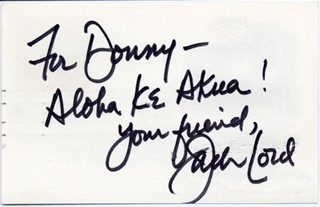 For Donny —
Aloha KE Akua!
your friend,
Jack Lord